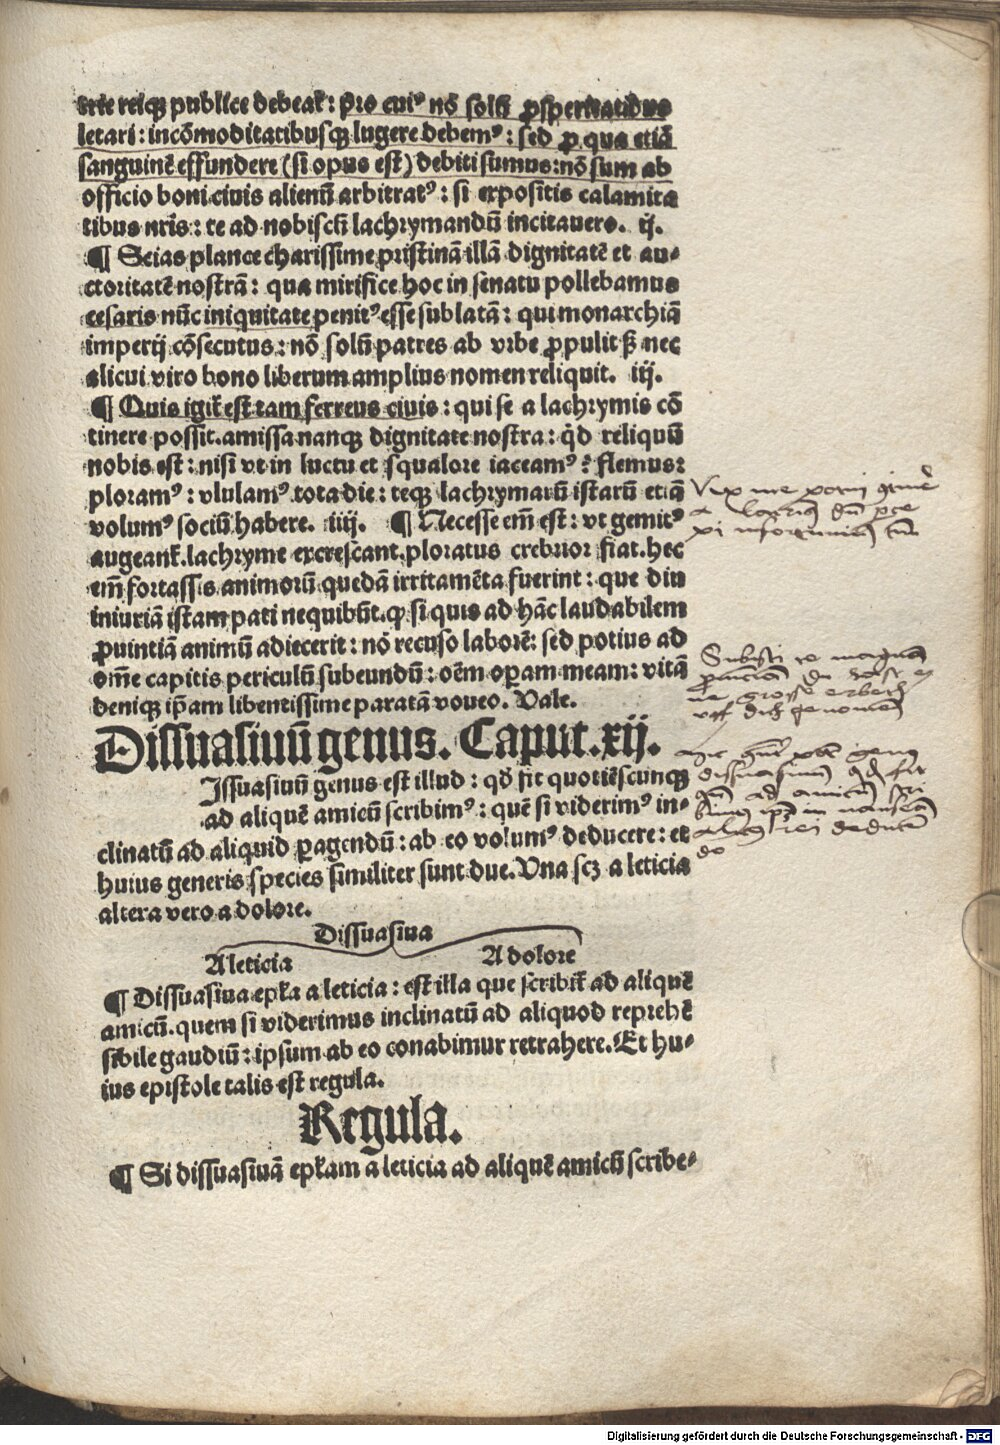 trie reiqꝫ publice debeat᷑: pro cui⁹ nō solū ꝓsperitatibus
letari: incōmoditatibusqꝫ lugere debem⁹: sed ꝓ qua etiā
sanguinē effundere (si opus est) debiti sumus: nō sum ab
officio boni ciuis alienū arbitrat⁹: si expositis calamita
tibus nr̄is: te ad nobiscū lachrymandū incitauero. ij.
¶ Scias plane charissime pristinā illā dignitatē et au⸗
ctoritatē nostrā: qua mirifice hoc in senatu pollebamus
cesaris nūc iniquitate penit⁹ esse sublatā: qui monarchiā
imperij cōsecutus: nō solū patres ab vrbe ꝓpulit ꝫ nec
alicui viro bono liberum amplius nomen reliquit. iij.
¶ Quis igit᷑ est tam ferreus ciuis: qui se a lachrymis cō
tinere possit. amissa nanqꝫ dignitate nostra: qd̄ reliquū
nobis est: nisi vt in luctu et squalore iaceam⁹? flemus:
ploram⁹: vlulam⁹ tota die: teqꝫ lachrymarū istarū etiā
volum⁹ sociū habere. iiij. ¶ Necesse em̄ est: vt gemit⁹
augeant᷑. lachryme excrescant. ploratus crebrior fiat. hec
em̄ fortassis animorū quedā irritamēta fuerint: que diu
iniuriā istam pati nequibūt. ꝙ si quis ad hāc laudabilem
ꝓuintiā animū adiecerit: nō recuso laborē: sed potius ad
om̄e capitis periculū subeundū: oēm oꝑam meam: vitā
deniqꝫ ip̄am libentissime paratā voueo. Vale.
Dissuasiuū genus. Caput. xij.
Issuasiuū genus est illud: qd̄ fit quotiēscunqꝫ
ad aliquē amicū scribim⁹: quē si viderim⁹ in⸗
clinatū ad aliquid ꝑagendū: ab eo volum⁹ deducere: et
huius generis species similiter sunt due. Vna scꝫ a leticia
altera vero a dolore.
Dissuasiua
A leticia A dolore
¶ Dissuasiua epl̄a a leticia: est illa que scribit᷑ ad aliquē
amicū. quem si viderimus inclinatū ad aliquod reprehē
sibile gaudiū: ipsum ab eo conabimur retrahere. Et hu⸗
ius epistole talis est regula.
Regula.
¶ Si dissuasiuā epl̄am a leticia ad aliquē amicū scribe⸗
Digitalisierung gefördert durch die Deutsche Forschungsgemeinschaft - DFG